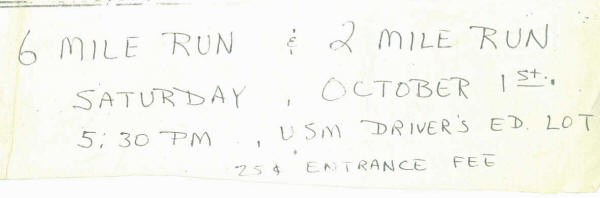 6 MILE RUN & 2 MILE RUN
SATURDAY, OCTOBER 1st.
5:30 PM, USM DRIVER'S ED. LOT
25¢ ENTRANCE FEE